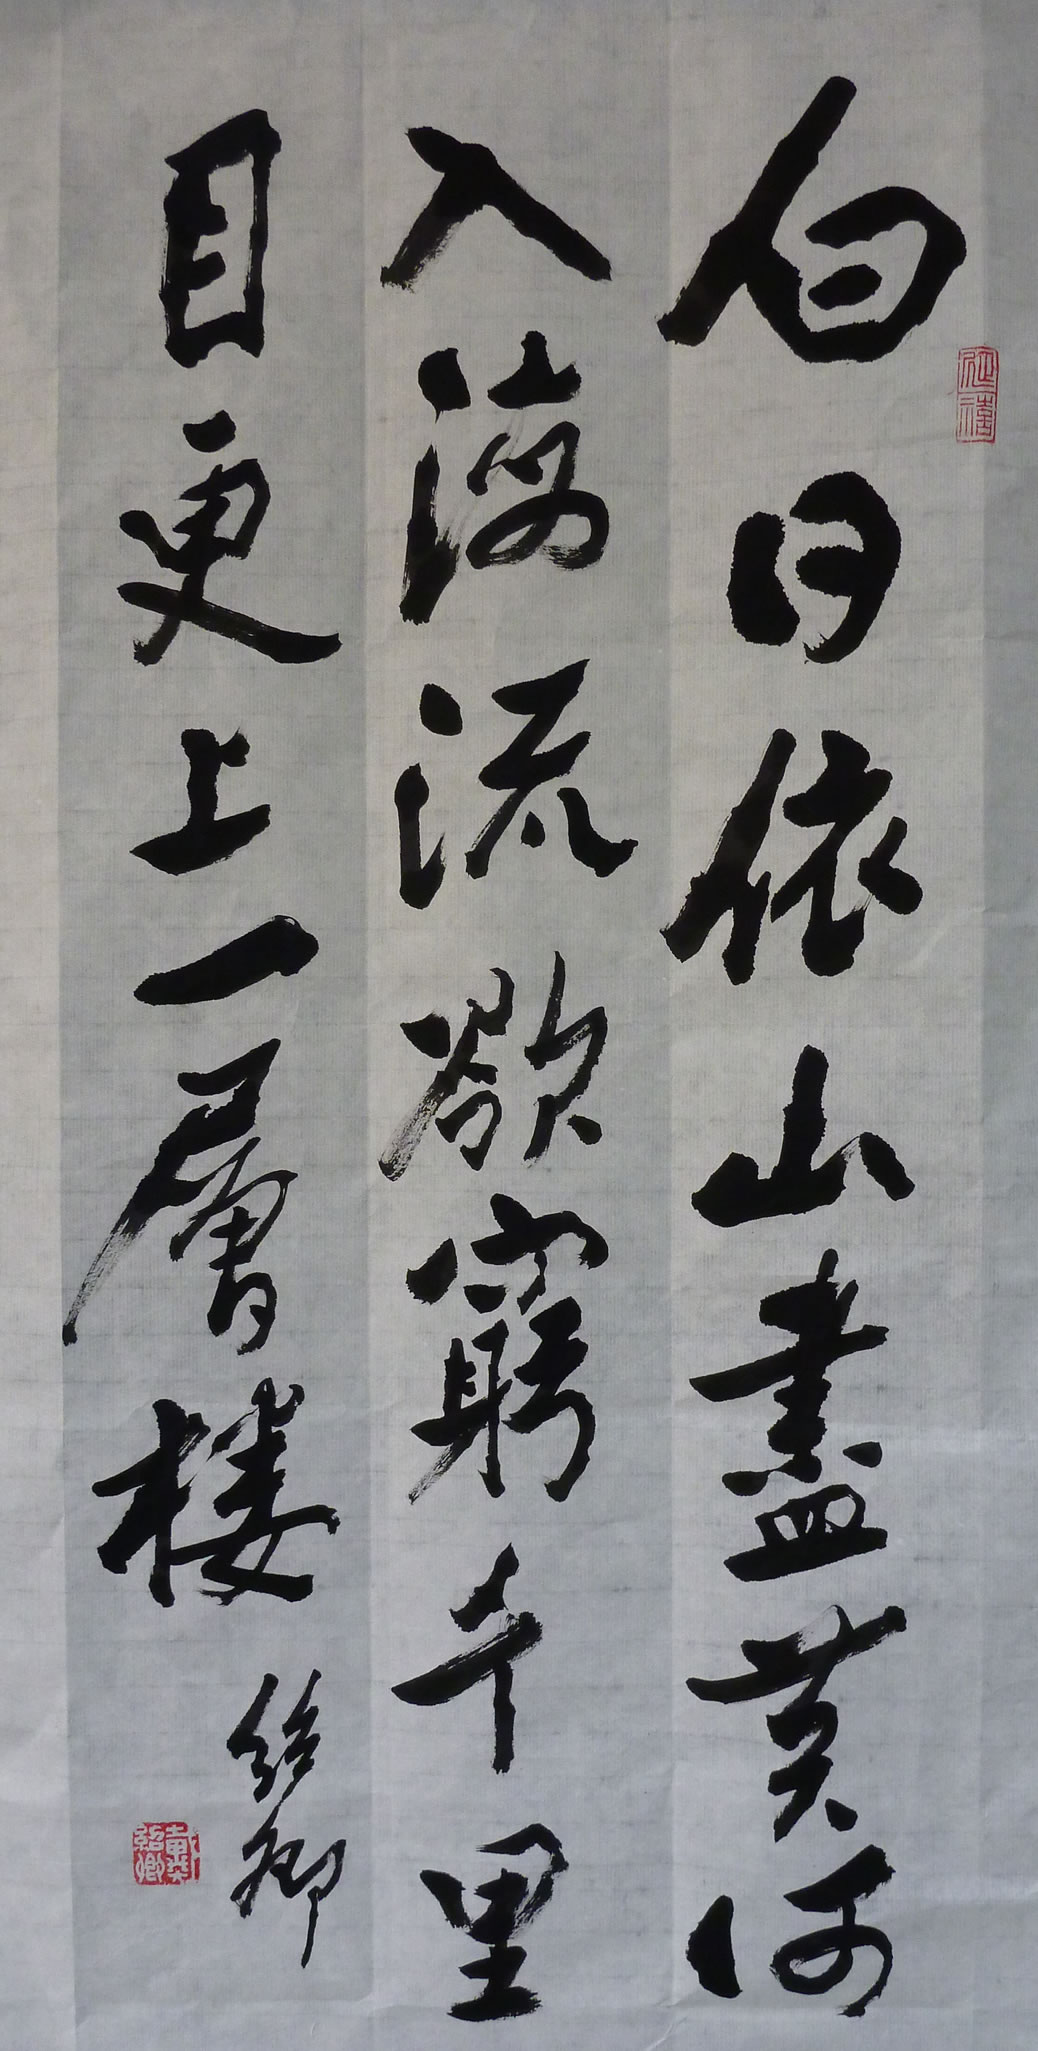 白日依山盡黃河
入海流欲窮千里
目更上一層楼
紹卿
戴紹卿